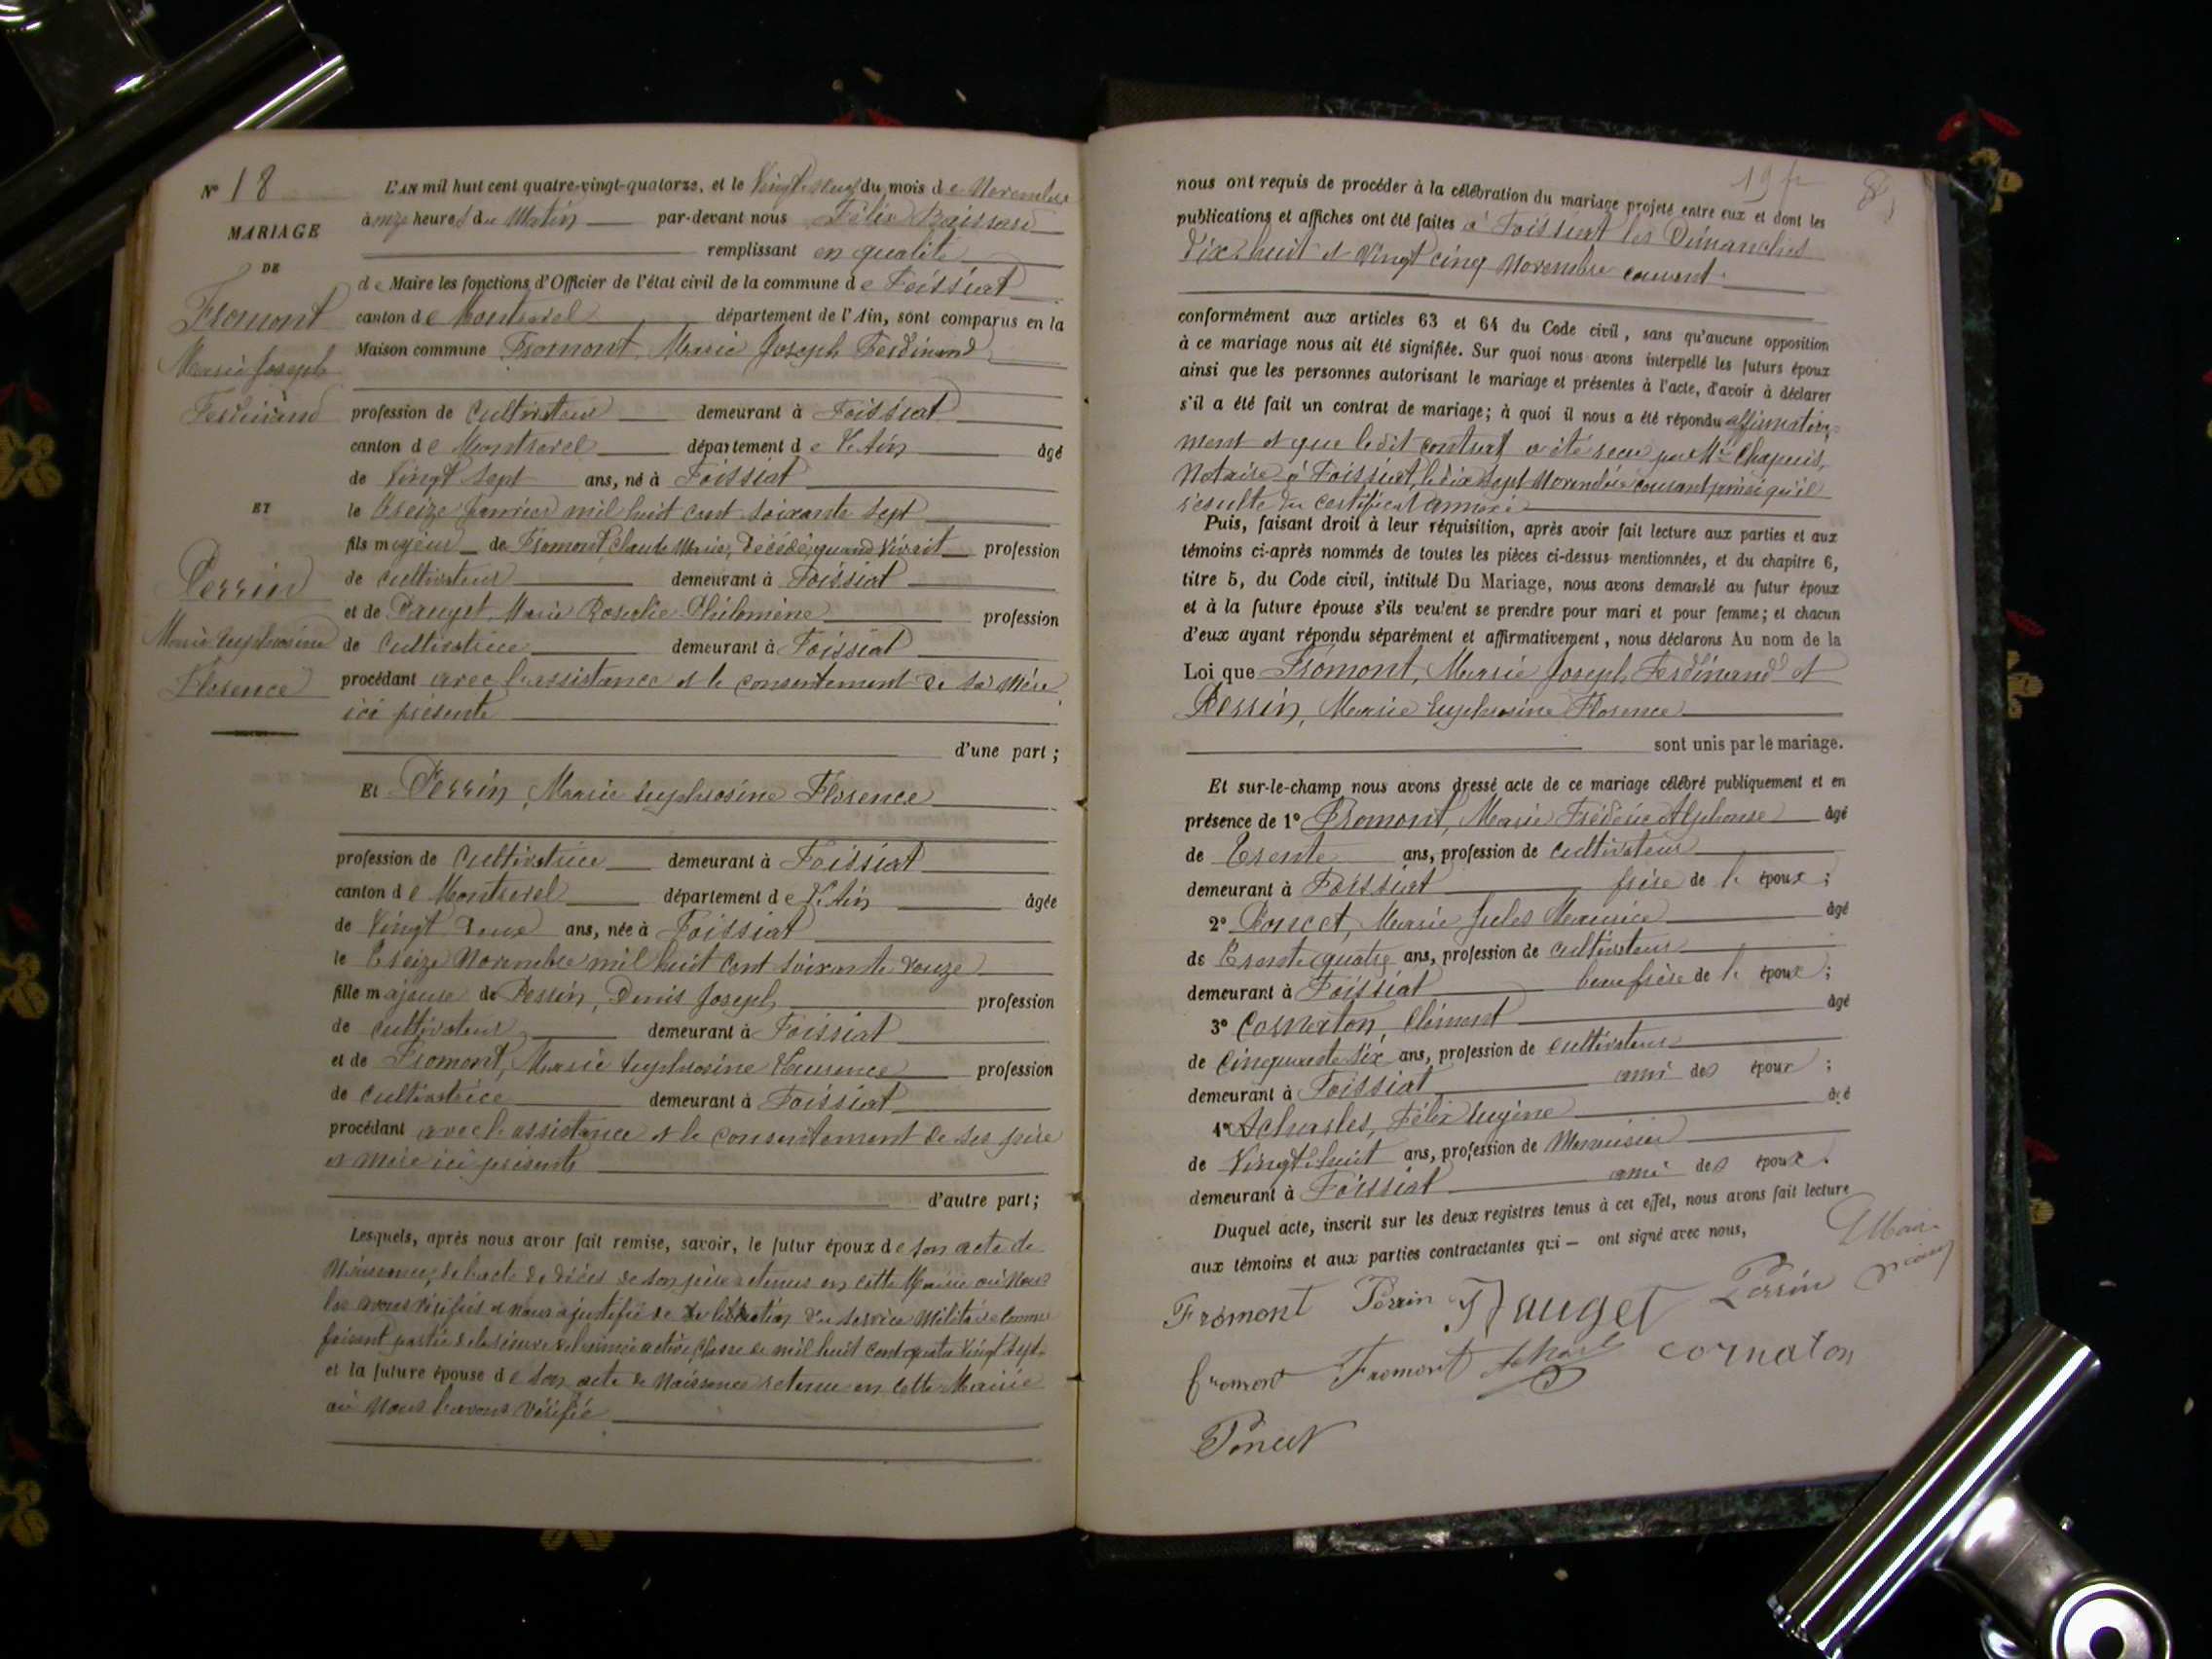 N° 18
MARIAGE
DE
Fromont
Marie Joseph
Ferdinand
ET
Perrin
Marie Euphrosine
Florence
L'AN mil huit cent quatre-vingt-quatorze, et le Vingt du mois de Novembre
à onze heures du Matin par-devant nous Félix
remplissant en qualité
de Maire les fonctions d'Officier de l'état civil de la commune de Foissiat
canton de Montrevel département de l'Ain, sont comparus en la
Maison commune Fromont, Marie Joseph Ferdinand
profession de Cultivateur demeurant à Foissiat
canton de Montrevel département de l'Ain âgé
de Vingt sept ans, né à Foissiat
le treize Janvier mil huit cent soixante sept
fils majeur de Fromont, Claude Marie, Décédé, quand vivait profession
de cultivateur demeurant à Foissiat
et de Pauget, Marie Rosalie Philomène profession
de Cultivatrice demeurant à Foissiat
procédant avec l'assistance et le consentement de sa mère
ici présente
d'une part ;
Et Perrin, Marie Euphrosine Florence
profession de Cultivatrice demeurant à Foissiat
canton de Montrevel département de l'Ain âgée
de Vingt Deux ans, née à Foissiat
le Treize Novembre mil huit cent soixante douze
fille majeure de Perrin, Denis Joseph profession
de cultivateur demeurant à Foissiat
et de Fromont, Marie Euphrosine Laurence profession
de Cultivatrice demeurant à Foissiat
procédant avec l'assistance et le consentement de ses père
et mère ici présents
d'autre part ;
Lesquels, après nous avoir fait remise, savoir, le futur époux de son acte de
Naissance, de l'acte de décès de son père retenus en cette Mairie où Nous
les avons vérifiés et nous a justifié de sa libération du service Militaire comme
faisant partie de la réserve de l'armée active classe de mil huit cent quatre Vingt Sept
et la future épouse de son acte de Naissance retenu en cette Mairie
où Nous l'avons Vérifié
nous ont requis de procéder à la célébration du mariage projeté entre eux et dont les
publications et affiches ont été faites à Foissiat les Dimanches
Dix huit et Vingt cinq Novembre courant
conformément aux articles 63 et 64 du Code civil, sans qu'aucune opposition
à ce mariage nous ait été signifiée. Sur quoi nous avons interpellé les futurs époux
ainsi que les personnes autorisant le mariage et présentes à l'acte, d'avoir à déclarer
s'il a été fait un contrat de mariage; à quoi il nous a été répondu affirmative-
ment et que ledit contrat a été reçu par Me Chapuis,
Notaire à Foissiat, le dix sept Novembre courant, ainsi qu'il
résulte du certificat annexé
Puis, faisant droit à leur réquisition, après avoir fait lecture aux parties et aux
témoins ci-après nommés de toutes les pièces ci-dessus mentionnées, et du chapitre 6,
titre 5, du Code civil, intitulé Du Mariage, nous avons demandé au futur époux
et à la future épouse s'ils veulent se prendre pour mari et pour femme; et chacun
d'eux ayant répondu séparément et affirmativement, nous déclarons Au nom de la
Loi que Fromont, Marie Joseph Ferdinand et
Perrin, Marie Euphrosine Florence
sont unis par le mariage.
Et sur-le-champ nous avons dressé acte de ce mariage célébré publiquement et en
présence de 1° Fromont, Marie Frédéric Alphonse âgé
de Trente ans, profession de cultivateur
demeurant à Foissiat frère de l'époux ;
2° Poncet, Marie Jules Maurice âgé
de Trente quatre ans, profession de cultivateur
demeurant à Foissiat beau frère de l'époux ;
3° Cornaton, Clément âgé
de Cinquante six ans, profession de cultivateur
demeurant à Foissiat ami des époux ;
4° Acharles, Félix Eugène âgé
de Vingt huit ans, profession de Menuisier
demeurant à Foissiat ami des époux.
Duquel acte, inscrit sur les deux registres tenus à cet effet, nous avons fait lecture
aux témoins et aux parties contractantes qui — ont signé avec nous,
Fromont Perrin Pauget Perrin
fromont Fromont Acharles cornaton
Poncet